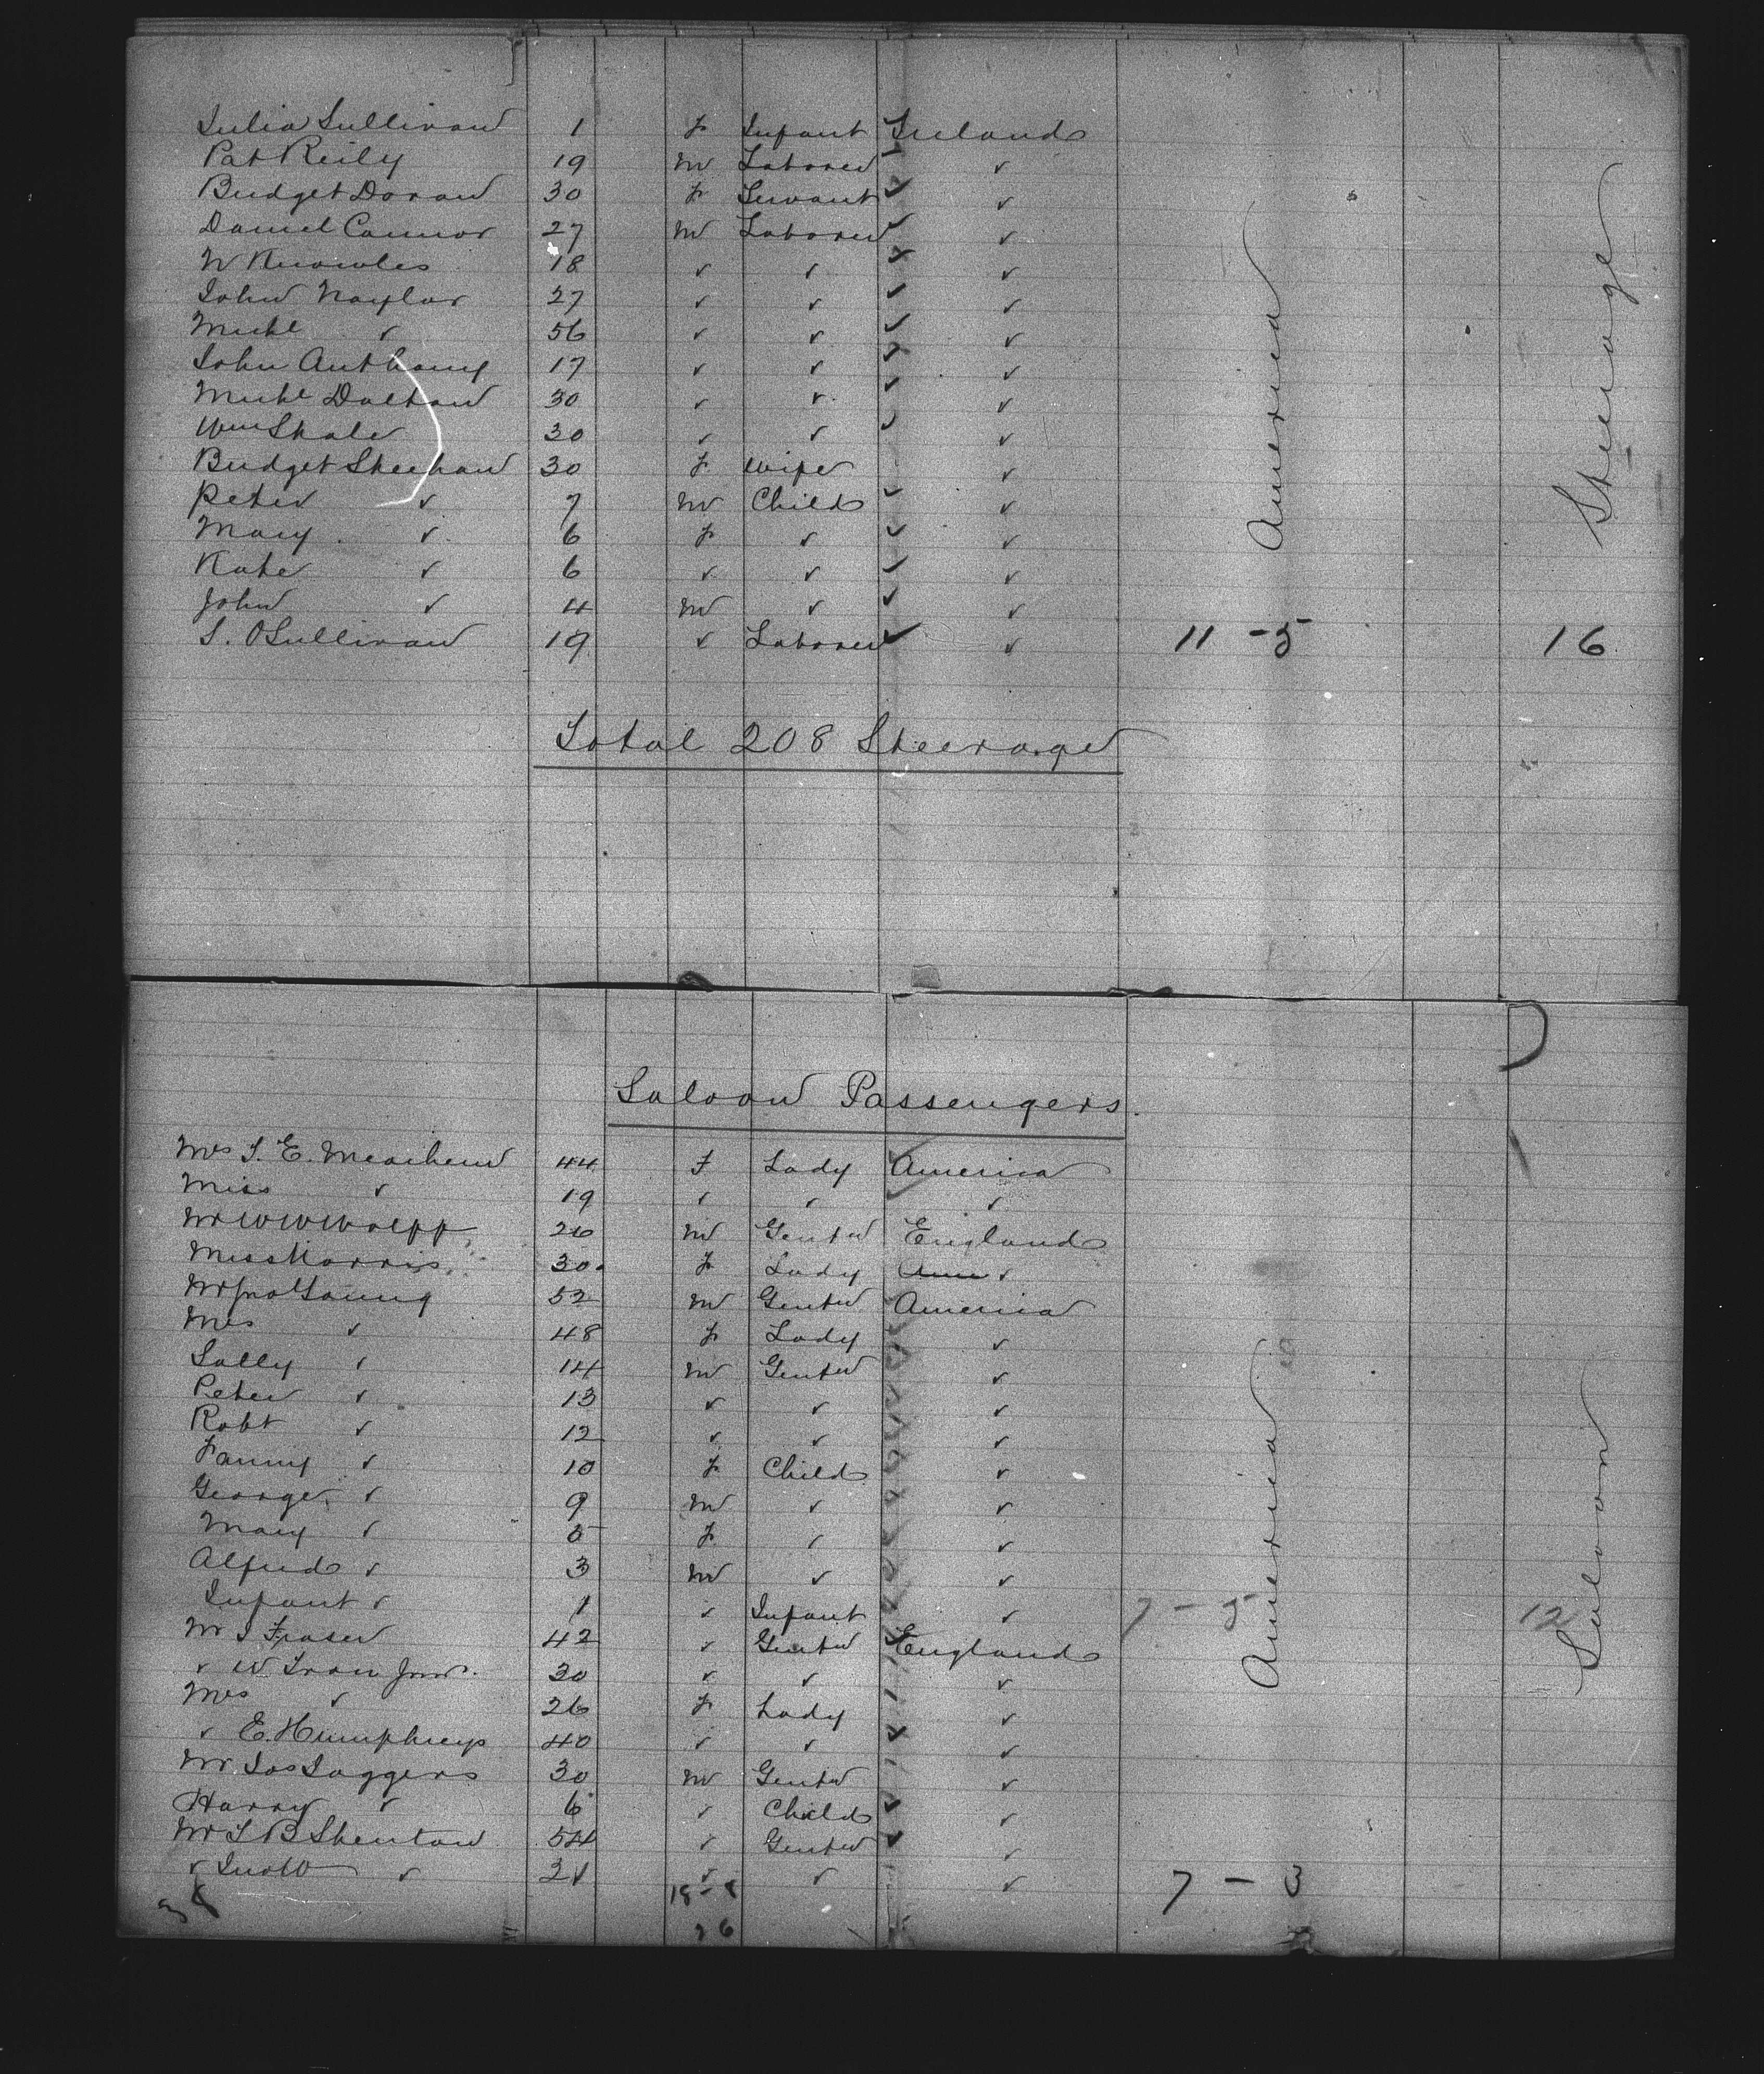 Julia Sullivan 1 F Infant Ireland
Pat Reily 19 M Laborer ✓ ✓
Bridget Doran 30 F Servant ✓ ✓
Daniel Connor 27 M Laborer ✓ ✓
W Knowles 18 ✓ ✓ ✓ ✓
John Naylor 27 ✓ ✓ ✓ ✓
Michl ✓ 56 ✓ ✓ ✓ ✓
John Anthony 17 ✓ ✓ ✓ ✓
Michl Dalton 30 ✓ ✓ ✓ ✓
Wm Skale 30 ✓ ✓ ✓ ✓
Bridget Sheehan 30 F Wife ✓
Peter ✓ 7 M Child ✓ ✓
Mary ✓ 6 F ✓ ✓ ✓
Kate ✓ 6 ✓ ✓ ✓ ✓
John ✓ 4 M ✓ ✓ ✓
S. OSullivan 19 ✓ Laborer ✓ ✓ 11 - 5 16
America
Steerage
Total 208 Steerage
Saloon Passengers.
Mrs S. E. 44 F Lady America
Miss ✓ 19 ✓ ✓ ✓
Mr W W 26 M Gentn England
Miss Harris 30 F Lady Ame ✓
Mr Jno Young 52 M Gentn America
Mrs ✓ 48 F Lady ✓
Sally ✓ 14 M Gentn ✓
Peter ✓ 13 ✓ ✓ ✓
Robt ✓ 12 ✓ ✓ ✓
Fanny ✓ 10 F Child ✓
George ✓ 9 M ✓ ✓
Mary ✓ 5 F ✓ ✓
Alfred ✓ 3 M ✓ ✓
Infant ✓ 1 ✓ Infant ✓ 7 - 5 12
Mr J Fraser 42 ✓ Gentn England
✓ W Junr. 30 ✓ ✓ ✓
Mrs ✓ 26 F Lady ✓
✓ E. Humphreys 40 ✓ ✓ ✓
Mr Jos Jaggers 30 M Gentn ✓
Harry ✓ 6 ✓ Child ✓ ✓
Mr T B Shenton 54 ✓ Gentn ✓ ✓
✓ Jno W ✓ 21 ✓ ✓ ✓ 7 - 3
America
Saloon